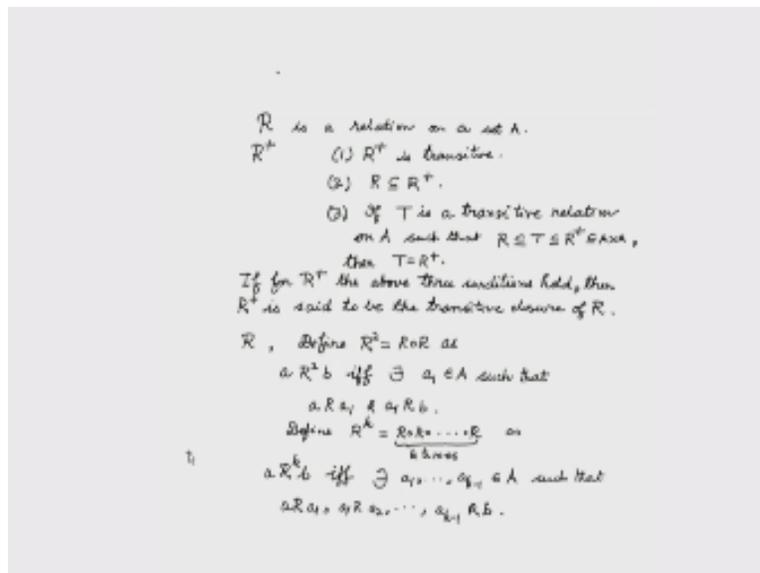 R is a relation on a set A.
R⁺ (1) R⁺ is transitive.
(2) R ⊆ R⁺.
(3) If T is a transitive relation
on A such that R ⊆ T ⊆ R⁺ ⊆ A×A,
then T = R⁺.
If for R⁺ the above three conditions hold, then
R⁺ is said to be the transitive closure of R.
R, Define R² = R∘R as
a R² b iff ∃ a₁ ∈ A such that
a R a₁ & a₁ R b.
Define Rᵏ = R∘R∘····∘R as
k times
a Rᵏ b iff ∃ a₁, ..., aₖ₋₁ ∈ A such that
a R a₁, a₁ R a₂, ···, aₖ₋₁ R b.